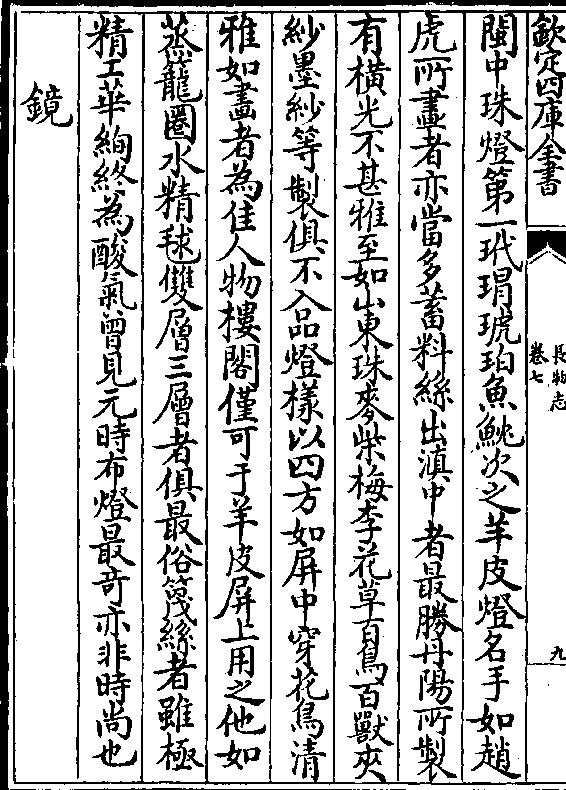 欽定四庫全書
長物志
卷七
九
閩中珠燈第一玳瑁琥珀魚魫次之羊皮燈名手如趙
虎所畫者亦當多蓄料絲出滇中者最勝丹陽所製
有横光不甚雅至如山東珠麥柴梅李花草百鳥百獸夾
紗墨紗等製俱不入品燈様以四方如屏中穿花鳥清
雅如畫者為佳人物樓閣僅可于羊皮屏上用之他如
蒸籠圈水精毬雙層三層者俱最俗篾絲者雖極
精工華絢終為酸氣曾見元時布燈最奇亦非時尚也
鏡